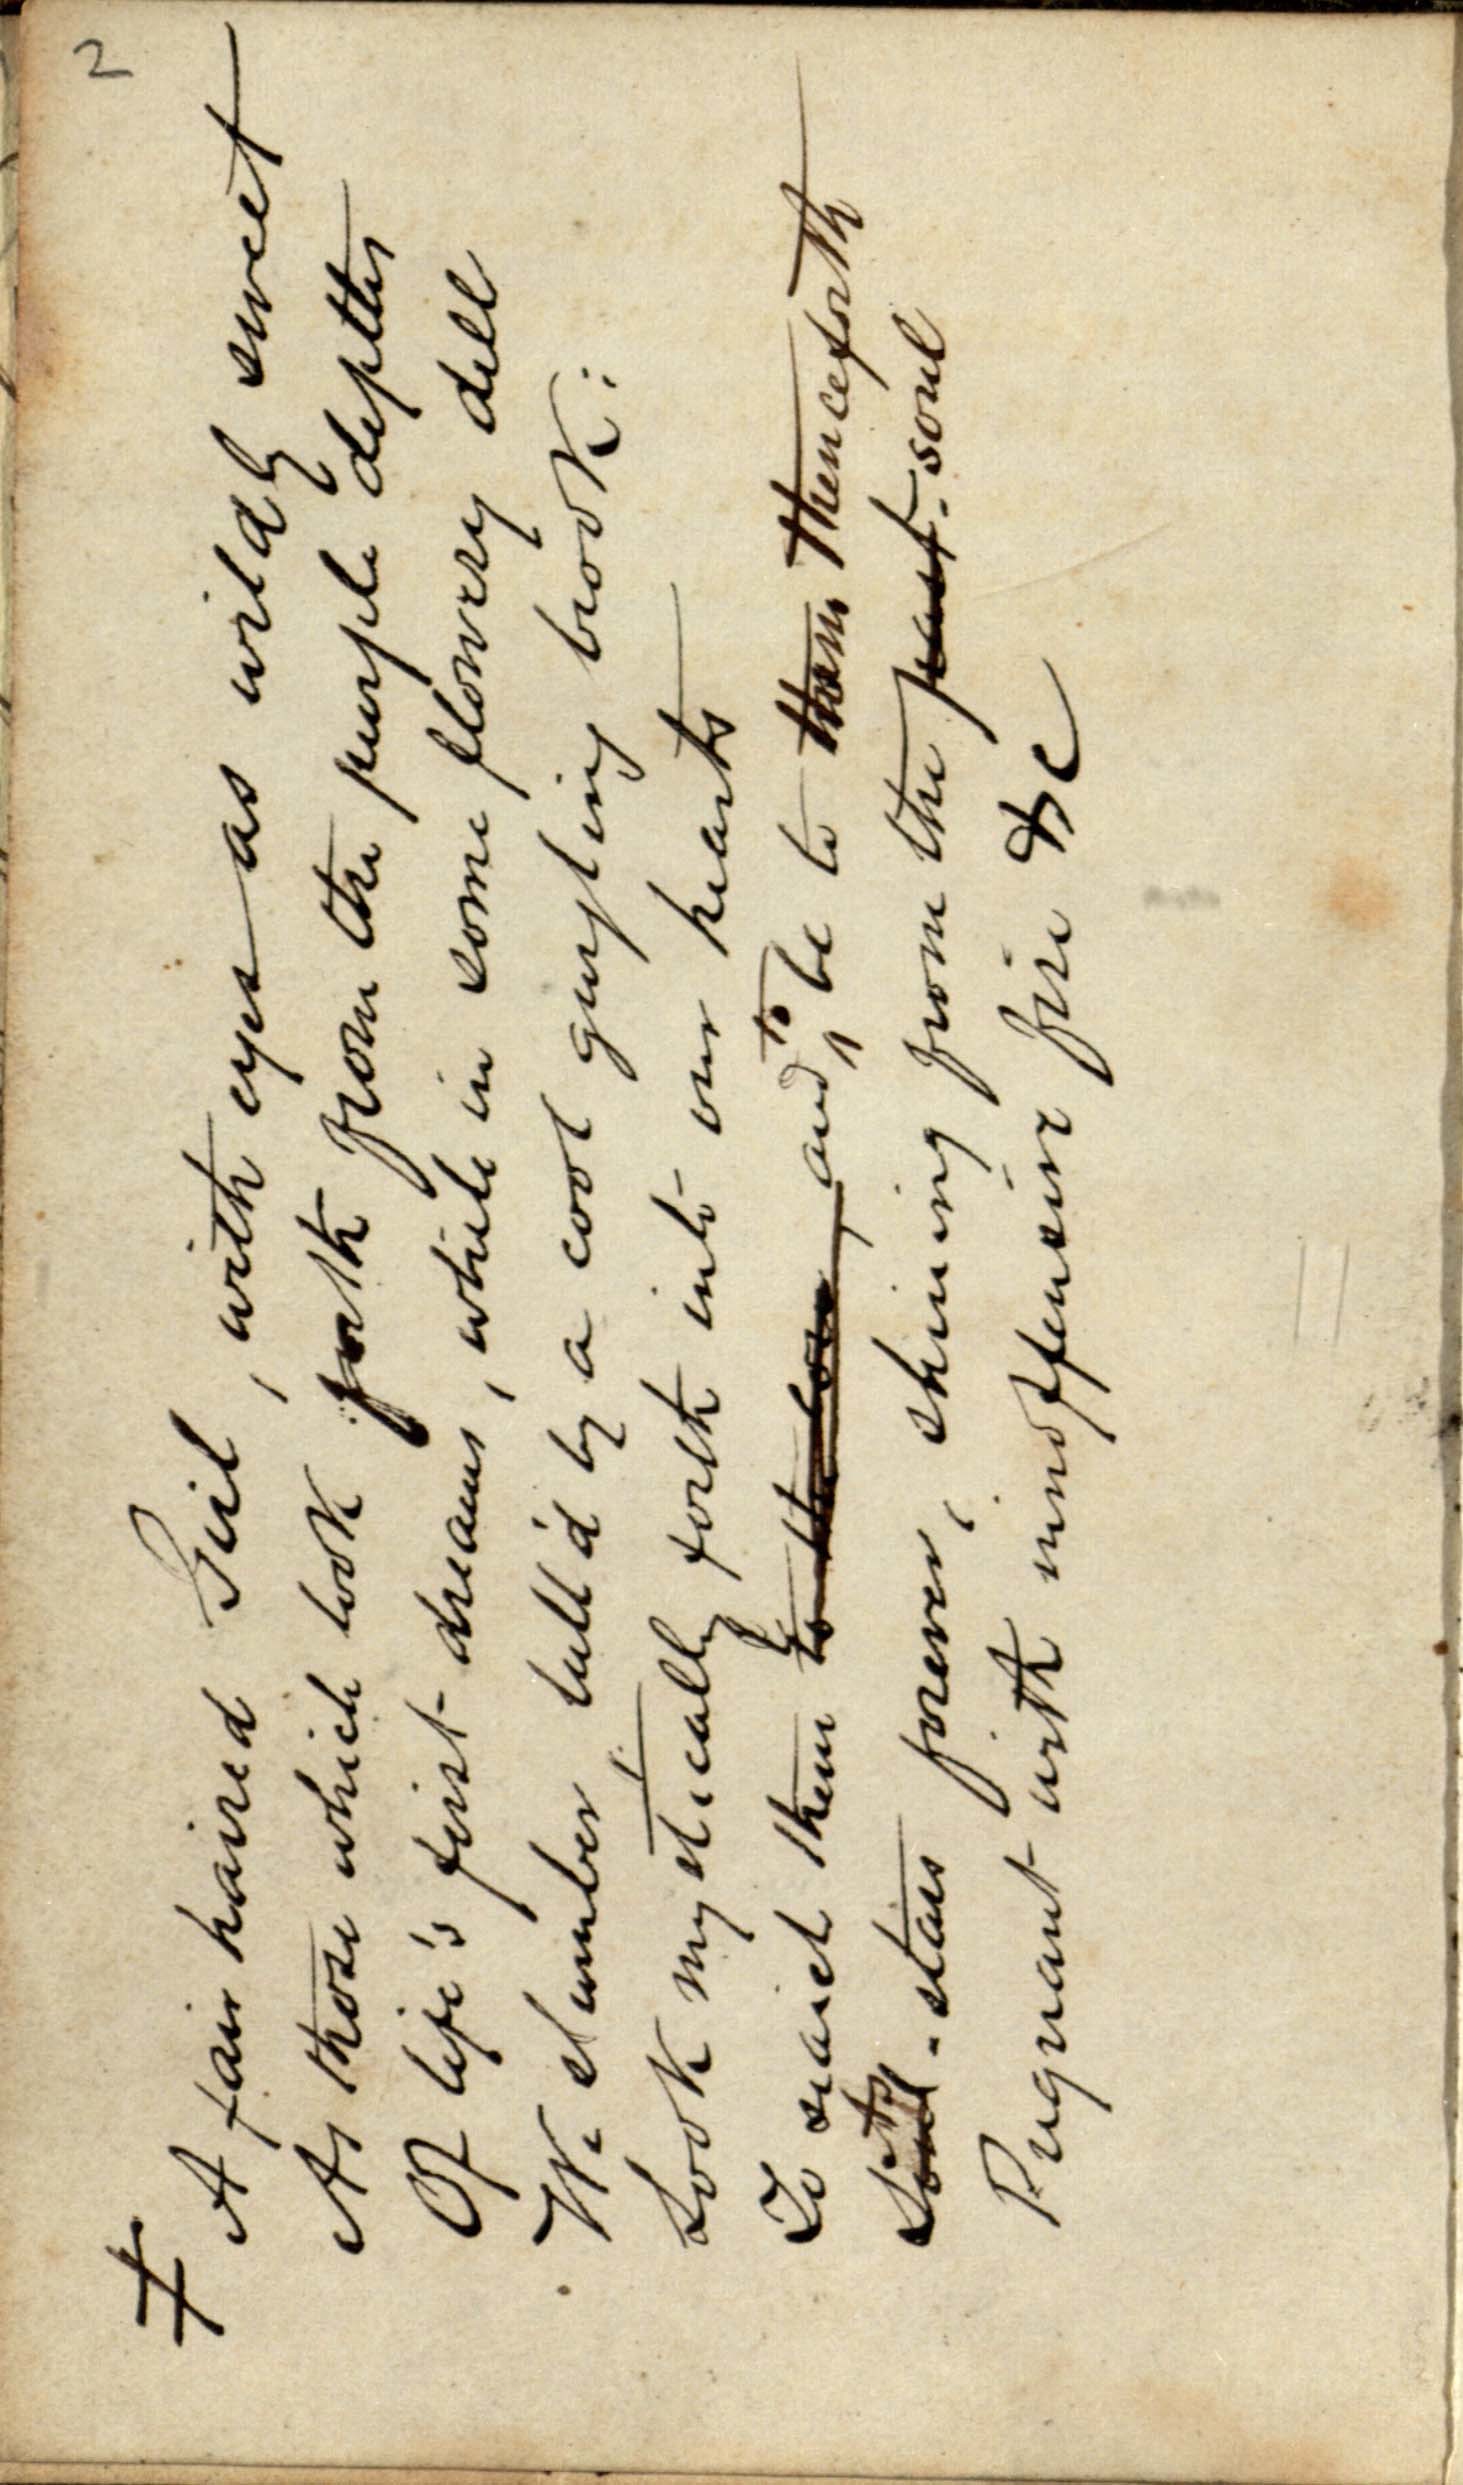 2
A fair haired Girl, with eyes as wildly sweet
As those which look forth from the purple depths
Of life's first dreams, while in some flowery dell
We slumber lull'd by a cool gurgling brook:
Look mystically forth into our hearts
To snail them and to be to them thenceforth
Its - stars forever, shining from the past - soul
Pregnant with unoffensive fire &c